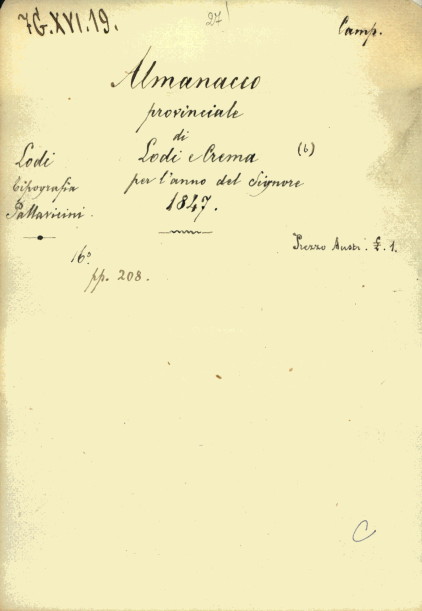 7G.XVI.19.
27
Camp.
Almanacco
provinciale
di
Lodi e Crema (b)
per l'anno del Signore
1847.
Lodi
tipografia
Pallavicini.
Prezzo Austr. £ 1.
16º
pp. 208.
C